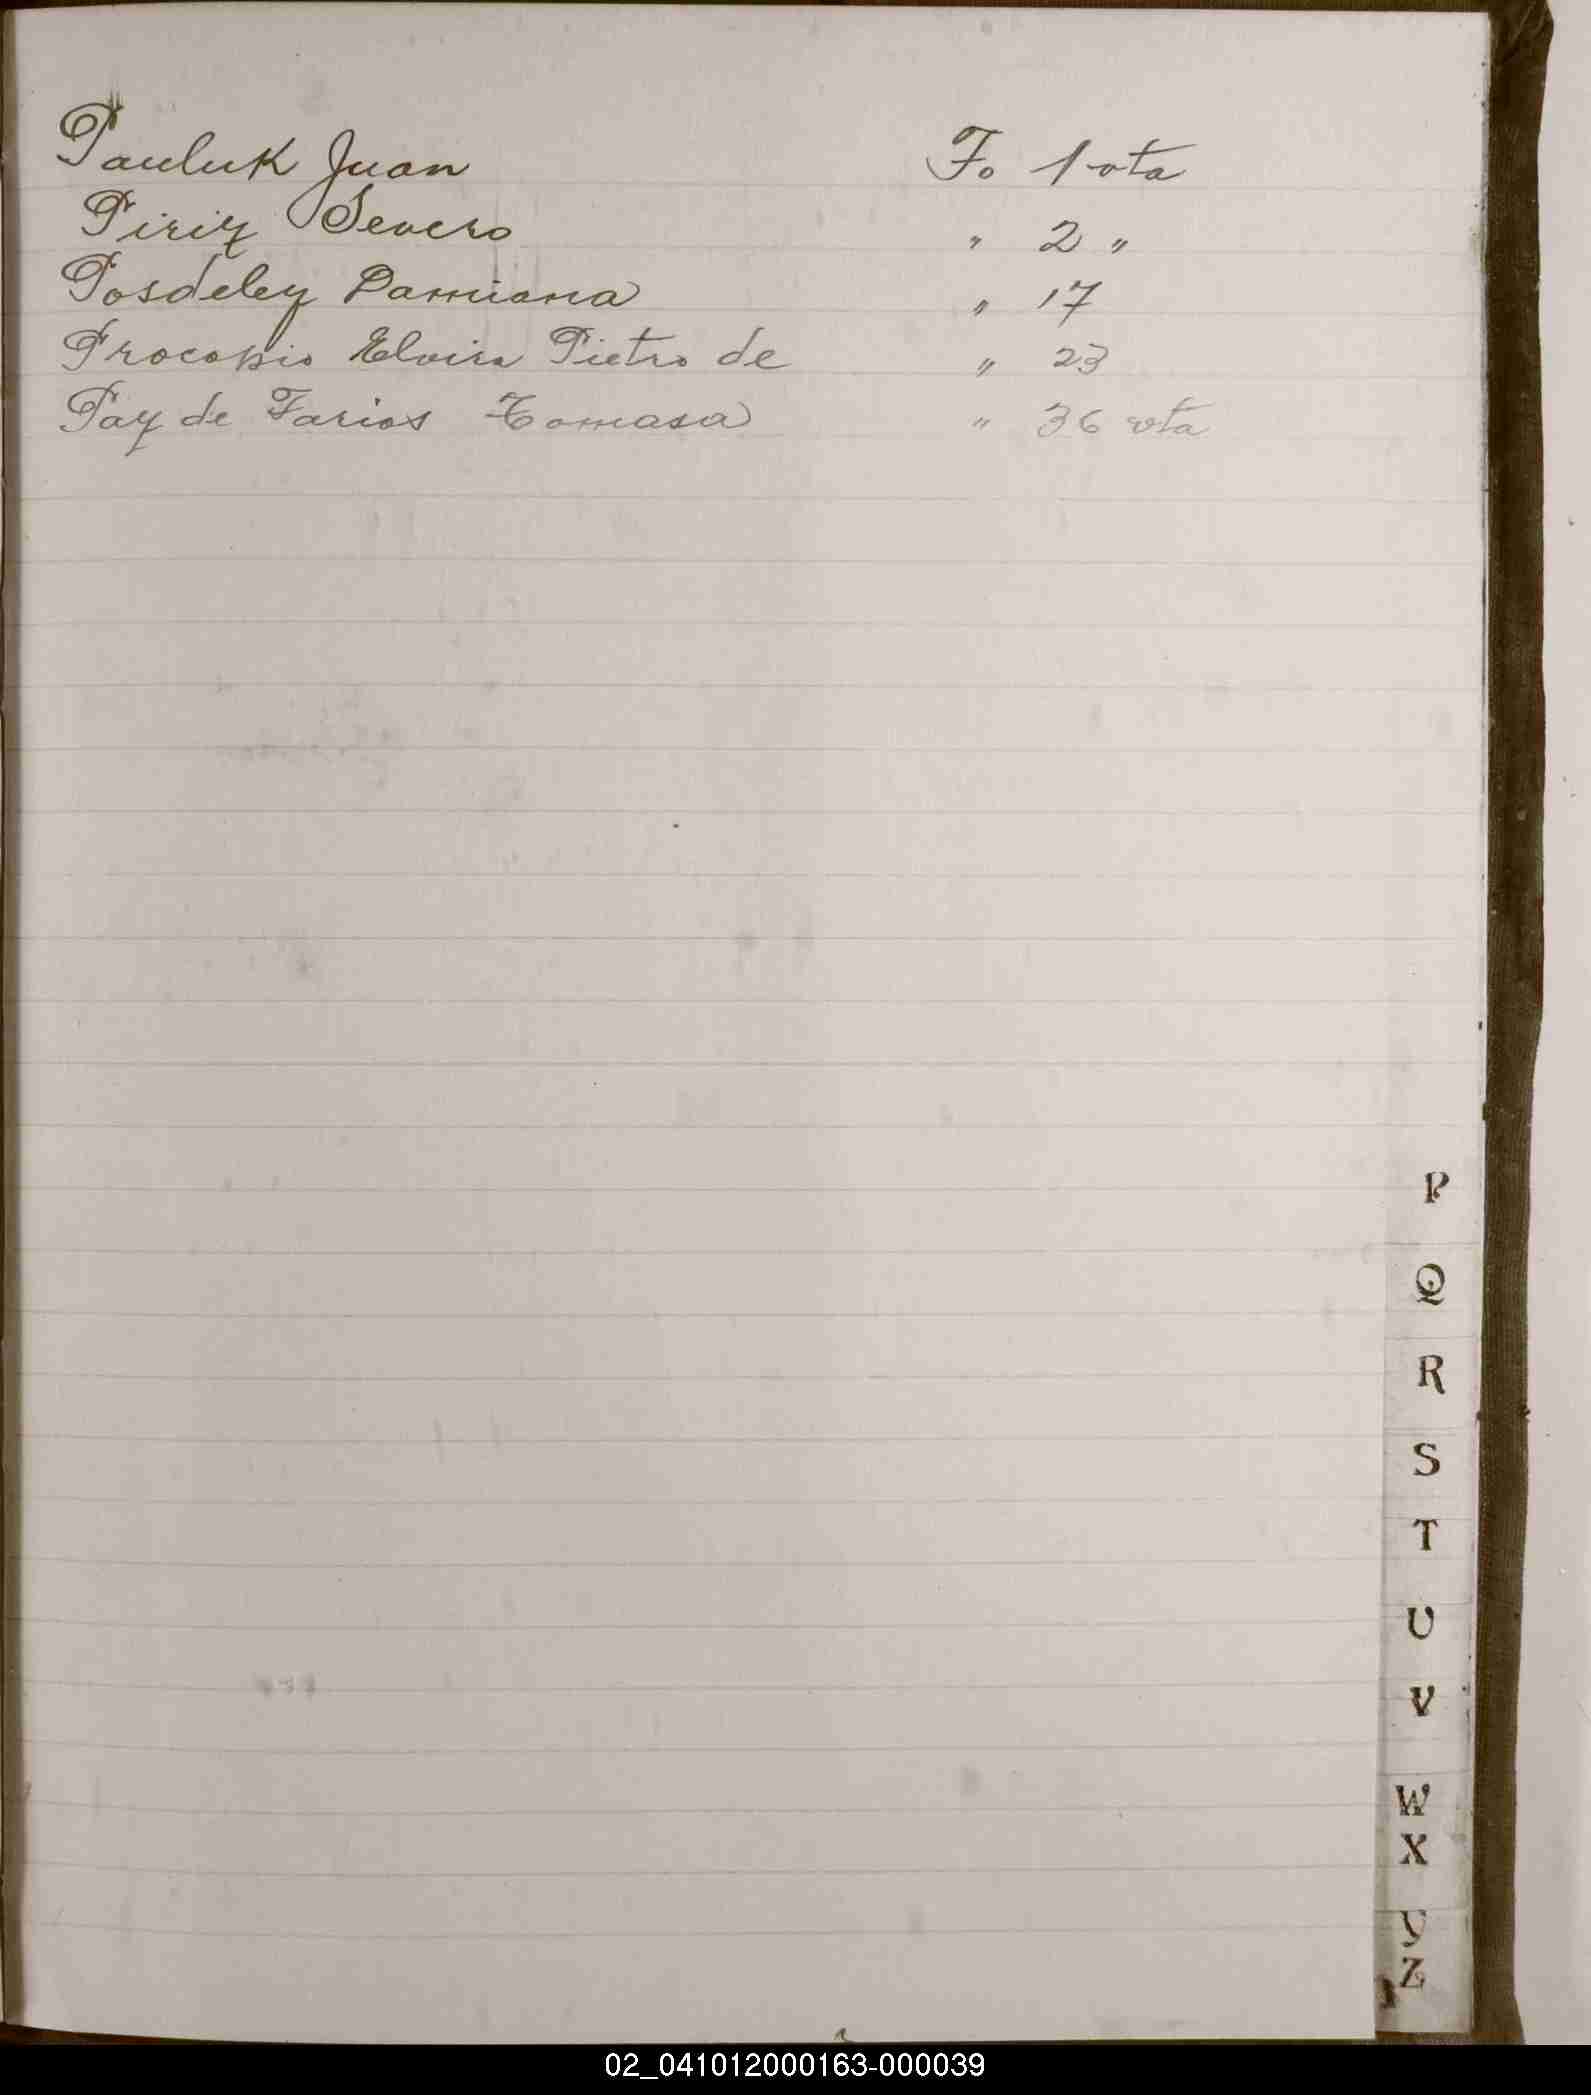 Pauluk Juan Fo 1 vta
Piriz Severo " 2 "
Posdeley Damiana " 17
Procopio Elvira Pietro de " 23
Paz de Farias Tomasa " 36 vta
P
Q
R
S
T
U
V
W
X
Y
Z
02_041012000163-000039